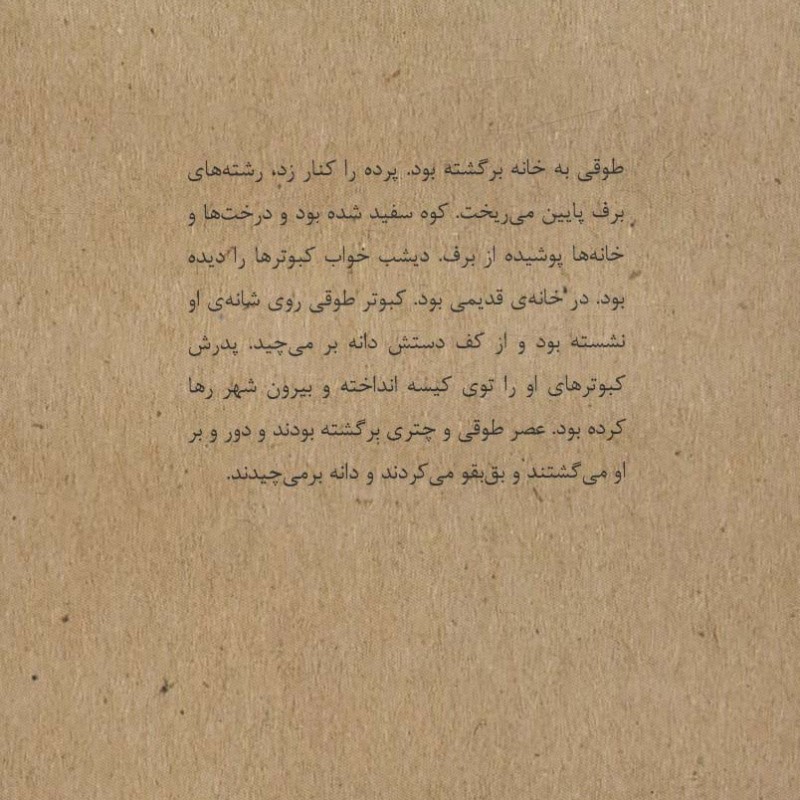 طوقی به خانه برگشته بود. پرده را کنار زد، رشته‌های
برف پایین می‌ریخت. کوه سفید شده بود و درخت‌ها و
خانه‌ها پوشیده از برف. دیشب خواب کبوترها را دیده
بود. در خانه‌ی قدیمی بود. کبوتر طوقی روی شانه‌ی او
نشسته بود و از کف دستش دانه بر می‌چید. پدرش
کبوترهای او را توی کیسه انداخته و بیرون شهر رها
کرده بود. عصر طوقی و چتری برگشته بودند و دور و بر
او می‌گشتند و بق‌بقو می‌کردند و دانه برمی‌چیدند.